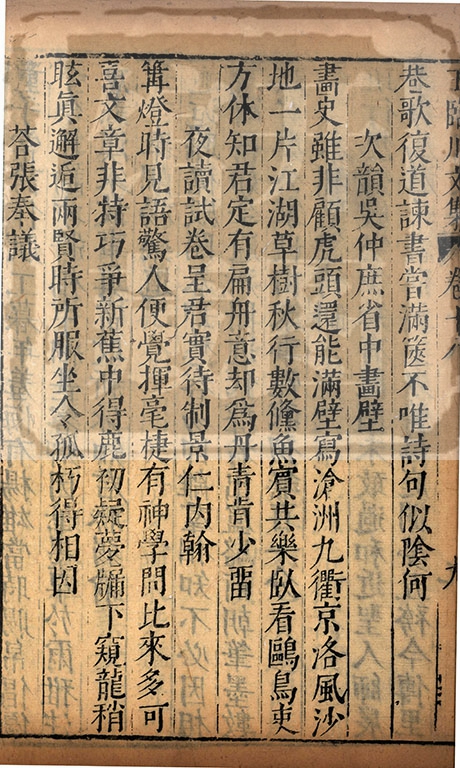 王臨川文集 卷十八 九
巷歌復道諫書嘗滿篋不唯詩句似陰何
次韻吳仲庶省中畫壁
畫史雖非顧虎頭還能滿壁寫滄洲九衢京洛風沙
地一片江湖草樹秋行數儵魚賓共樂臥看鷗鳥吏
方休知君定有扁舟意却爲丹青肯少畱
夜讀試卷呈君實待制景仁內翰
篝燈時見語驚人便覺揮毫捷有神學問比來多可
喜文章非特巧爭新蕉中得鹿初疑夢牖下窺龍稍
眩眞邂逅兩賢時所服坐令孤朽得相因
荅張奉議